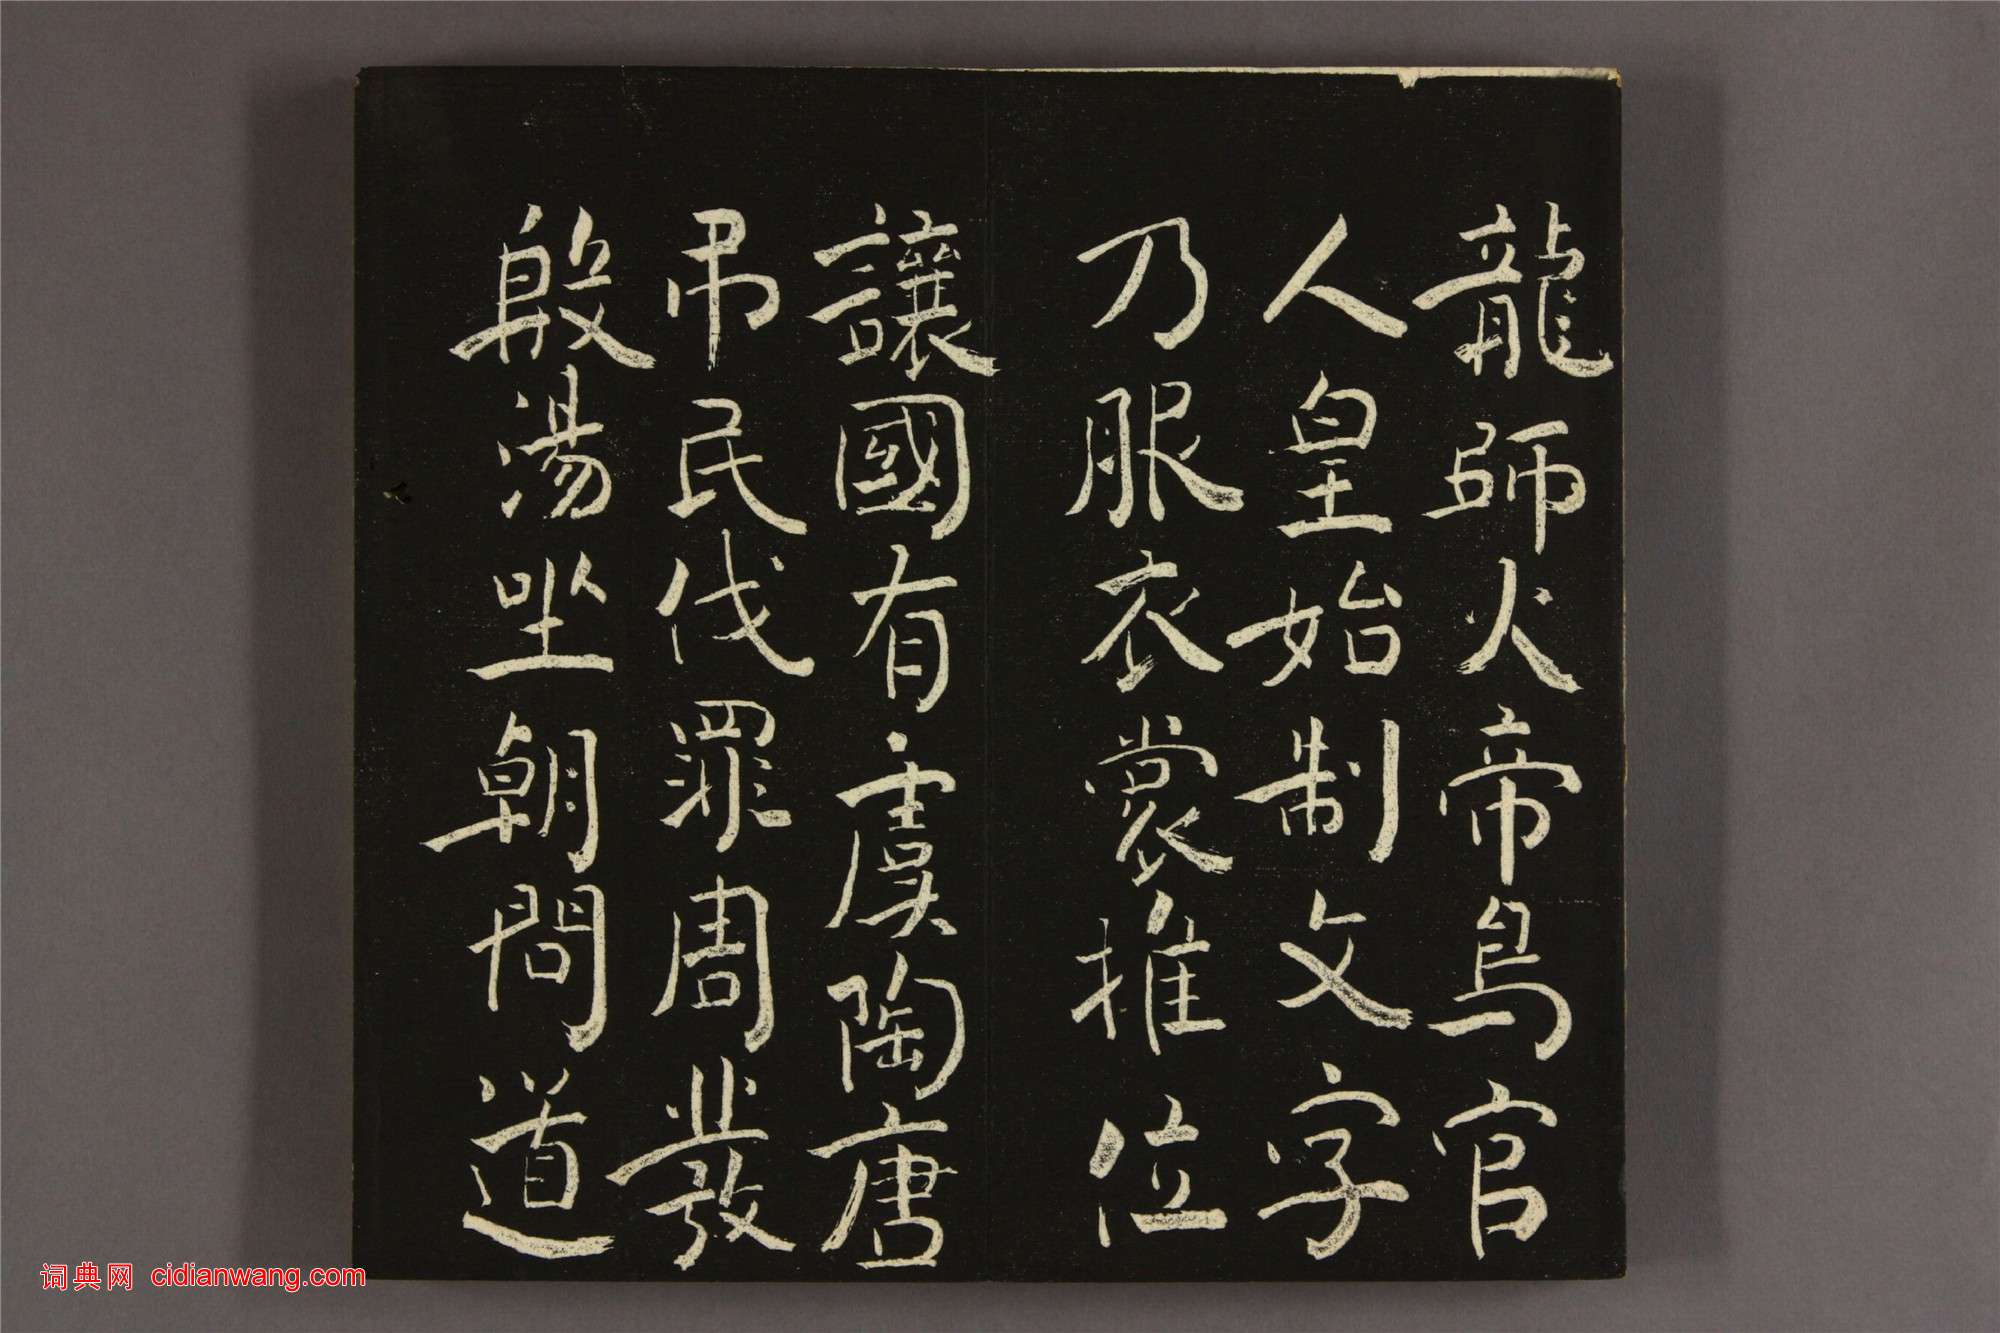 龍師火帝鳥官
人皇始制文字
乃服衣裳推位
讓國有虞陶唐
弔民伐罪周發
殷湯坐朝問道
词典网 cidianwang.com